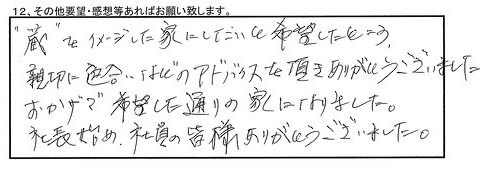 12、その他要望・感想等あればお願い致します。
"蔵"をイメージした家にしたいと希望したところ、
親切に色合いなどのアドバイスを頂きありがとうございました
おかげで希望した通りの家になりました。
社長始め、社員の皆様ありがとうございました。